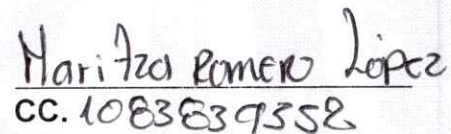 Maritza Romero López
CC. 1083839352